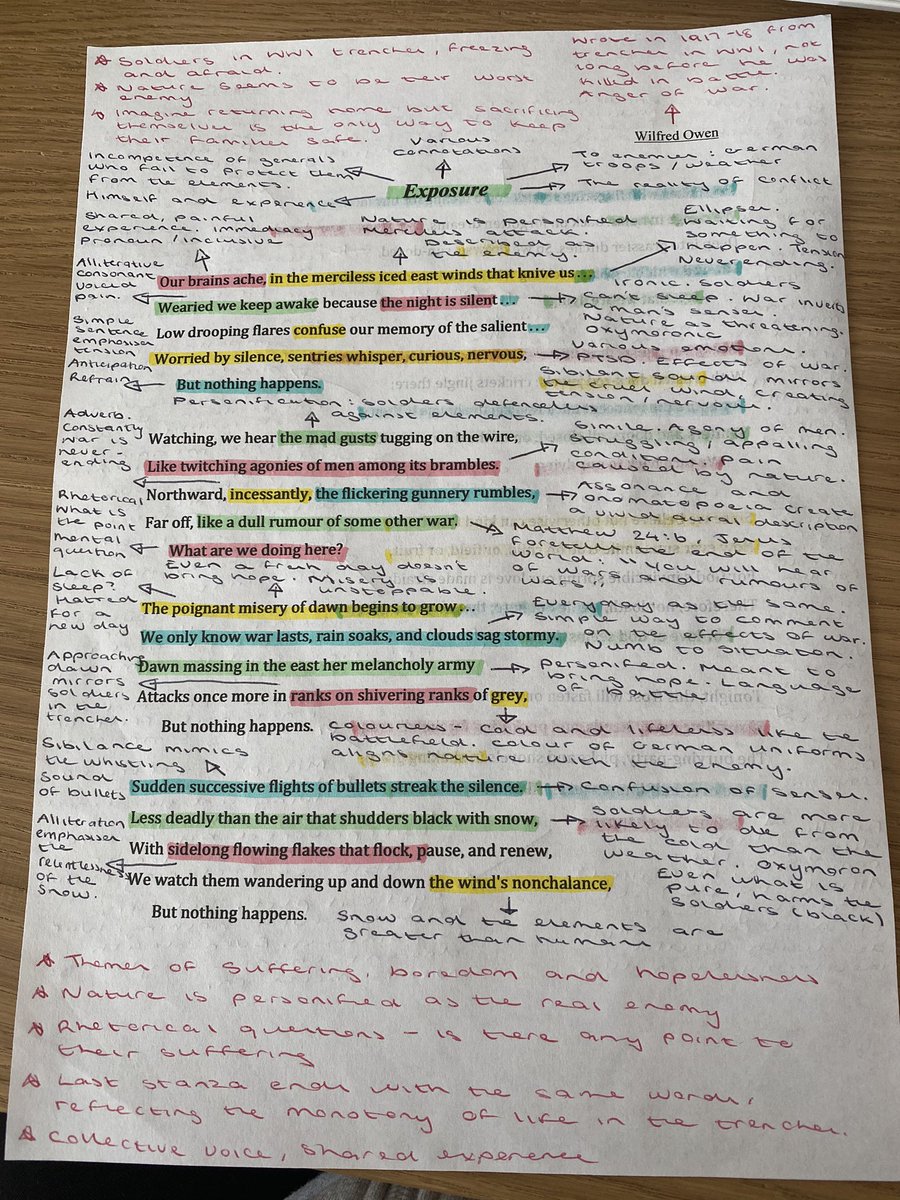 ☆ Soldiers in WW1 trenches, freezing
and afraid.
☆ Nature seems to be their worst
enemy
☆ Imagine returning home but sacrificing
themselves is the only way to keep
their families safe.
Wrote in 1917-18 from
trenches in WW1, not
long before he was
killed in battle.
Anger of war.
Wilfred Owen
Various
connotations
Incompetence of generals
who fail to protect them
from the elements.
To enemies: German
troops / weather
Exposure
The reality of conflict
Himself and experience
Shared, painful
experience. Immediacy
pronoun / inclusive
Nature is personified
Merciless attack.
Described as
the enemy.
Ellipses.
Waiting for
something to
happen. Tension
Never ending.
Alliterative
consonant
voiced
pain.
Our brains ache, in the merciless iced east winds that knive us...
Ironic. Soldiers
can't sleep. War inverts
a man's senses.
Nature as threatening.
Oxymoronic
Wearied we keep awake because the night is silent...
Low drooping flares confuse our memory of the salient...
Simple
sentence
emphasises
tension
Anticipation
Refrain
Worried by silence, sentries whisper, curious, nervous,
Various emotions.
PTSD. Effects of war.
Sibilant sound mirrors
the cruel wind, creating
tension / nervous.
But nothing happens.
Personification: soldiers defenceless
against elements.
Adverb.
Constantly
war is
never-
ending
Watching, we hear the mad gusts tugging on the wire,
Like twitching agonies of men among its brambles.
Simile. Agony of men.
Struggling, appalling
conditions. Pain
caused by nature.
Northward, incessantly, the flickering gunnery rumbles,
Assonance and
onomatopoeia create
a vivid aural description
Far off, like a dull rumour of some other war.
Matthew 24:6. Jesus
foretells the end of the
world: "You will hear
of wars and rumours of
Rhetorical
What is
the point
mental
question
What are we doing here?
Even a fresh day doesn't
bring hope. Misery is
unstoppable.
Lack of
sleep?
Hatred
for a
new day
The poignant misery of dawn begins to grow...
We only know war lasts, rain soaks, and clouds sag stormy.
Everyday as the same.
Simple way to comment
on the effects of war.
Numb to situation.
Approaching
dawn
mirrors
soldiers
in the
trenches.
Dawn massing in the east her melancholy army
Personified. Meant to
bring hope. Language
of battle
Attacks once more in ranks on shivering ranks of grey,
But nothing happens.
Colourless - cold and lifeless like the
battlefield. Colour of German uniforms
aligns nature with the enemy.
Sibilance mimics
the whistling
sound
of bullets
Sudden successive flights of bullets streak the silence.
Confusion of senses.
Less deadly than the air that shudders black with snow,
Soldiers are more
likely to die from
the cold than the
weather. Oxymoron
Even what is
pure, harms the
soldiers (black)
Alliteration
emphasises
the
relentlessness
of the
snow.
With sidelong flowing flakes that flock, pause, and renew,
We watch them wandering up and down the wind's nonchalance,
But nothing happens.
Snow and the elements are
greater than humans
☆ Themes of suffering, boredom and hopelessness
☆ Nature is personified as the real enemy
☆ Rhetorical questions - is there any point to
their suffering
☆ Last stanza ends with the same words,
reflecting the monotony of life in the trenches.
☆ Collective voice, shared experience